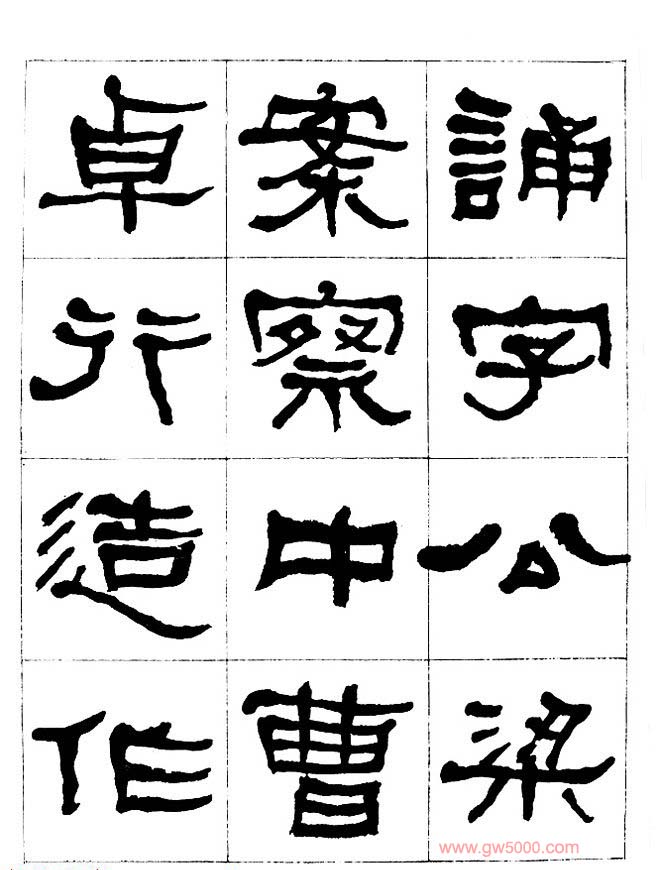 誦字公梁
案察中曹
卓行造作
www.gw5000.com